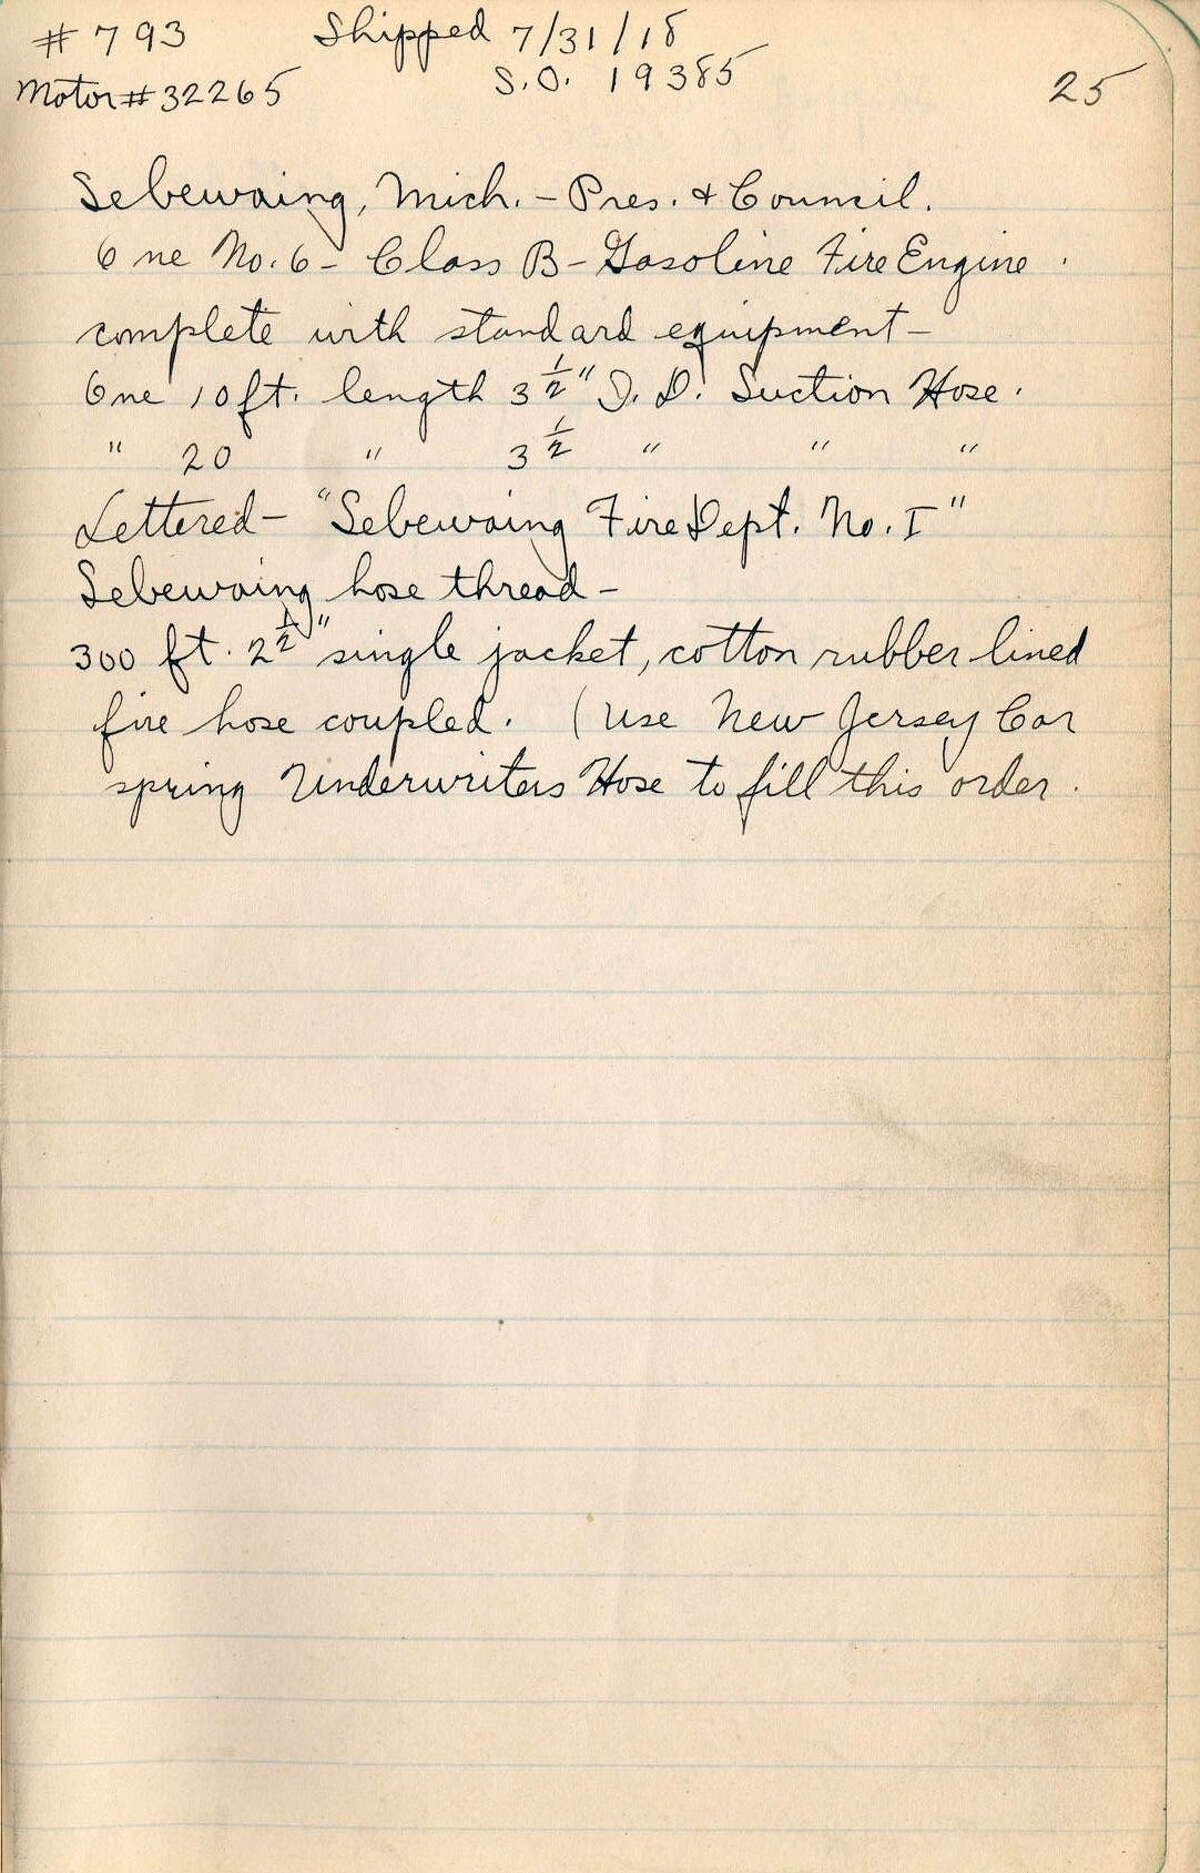 # 793 Shipped 7/31/18
Motor # 32265 S.O. 19385 25
Sebewaing, Mich. - Pres. & Council.
One No. 6 - Class B - Gasoline Fire Engine.
complete with standard equipment -
One 10 ft. length 3 1/2" I. D. Suction Hose.
" 20 " 3 1/2 " " "
Lettered - "Sebewaing Fire Dept. No. I"
Sebewaing hose thread -
300 ft. 2 1/2" single jacket, cotton rubber lined
fire hose coupled. (Use New Jersey Car
spring Underwriters Hose to fill this order.